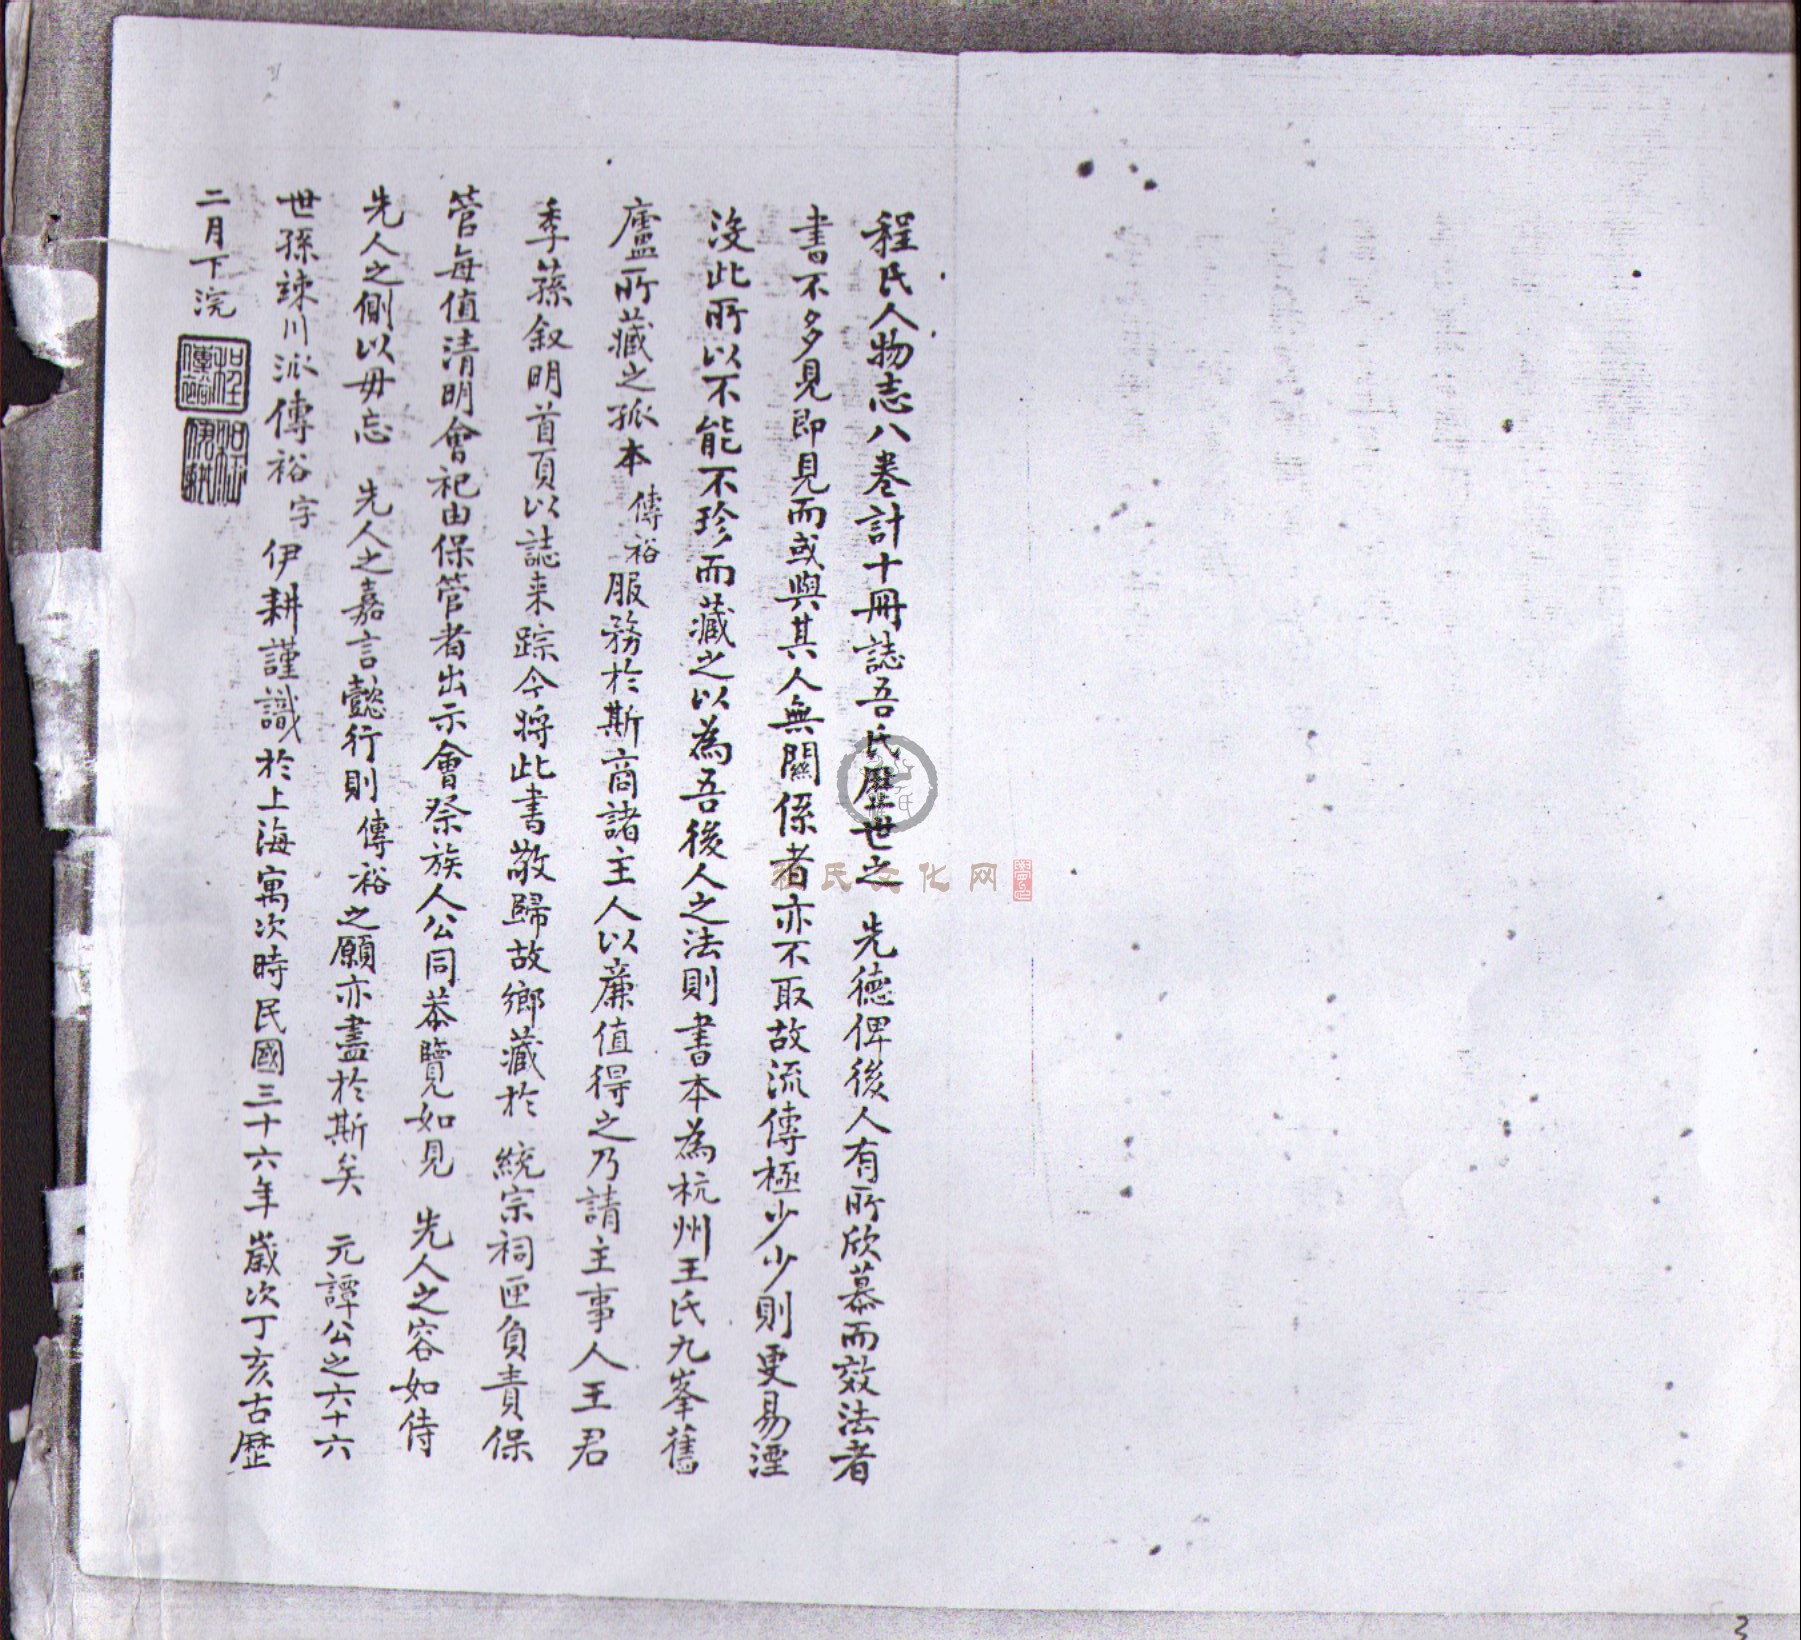 程氏人物志八卷計十冊誌吾氏歷世之 先德俾後人有所欣慕而效法者
書不多見即見而或與其人無關係者亦不取故流傳極少少則更易湮
沒此所以不能不珍而藏之以為吾後人之法則書本為杭州王氏九峯舊
廬所藏之孤本傳裕服務於斯商諸主人以廉值得之乃請主事人王君
季蓀叙明首頁以誌来踪今將此書敬歸故鄉藏於 統宗祠匣負責保
管每值清明會祀由保管者出示會祭族人公同恭覽如見 先人之容如侍
先人之側以毋忘 先人之嘉言懿行則傳裕之願亦盡於斯矣 元譚公之六十六
世孫竦川派傳裕字伊耕謹識於上海寓次時民國三十六年歲次丁亥古歷
二月下浣
氏文化网
3